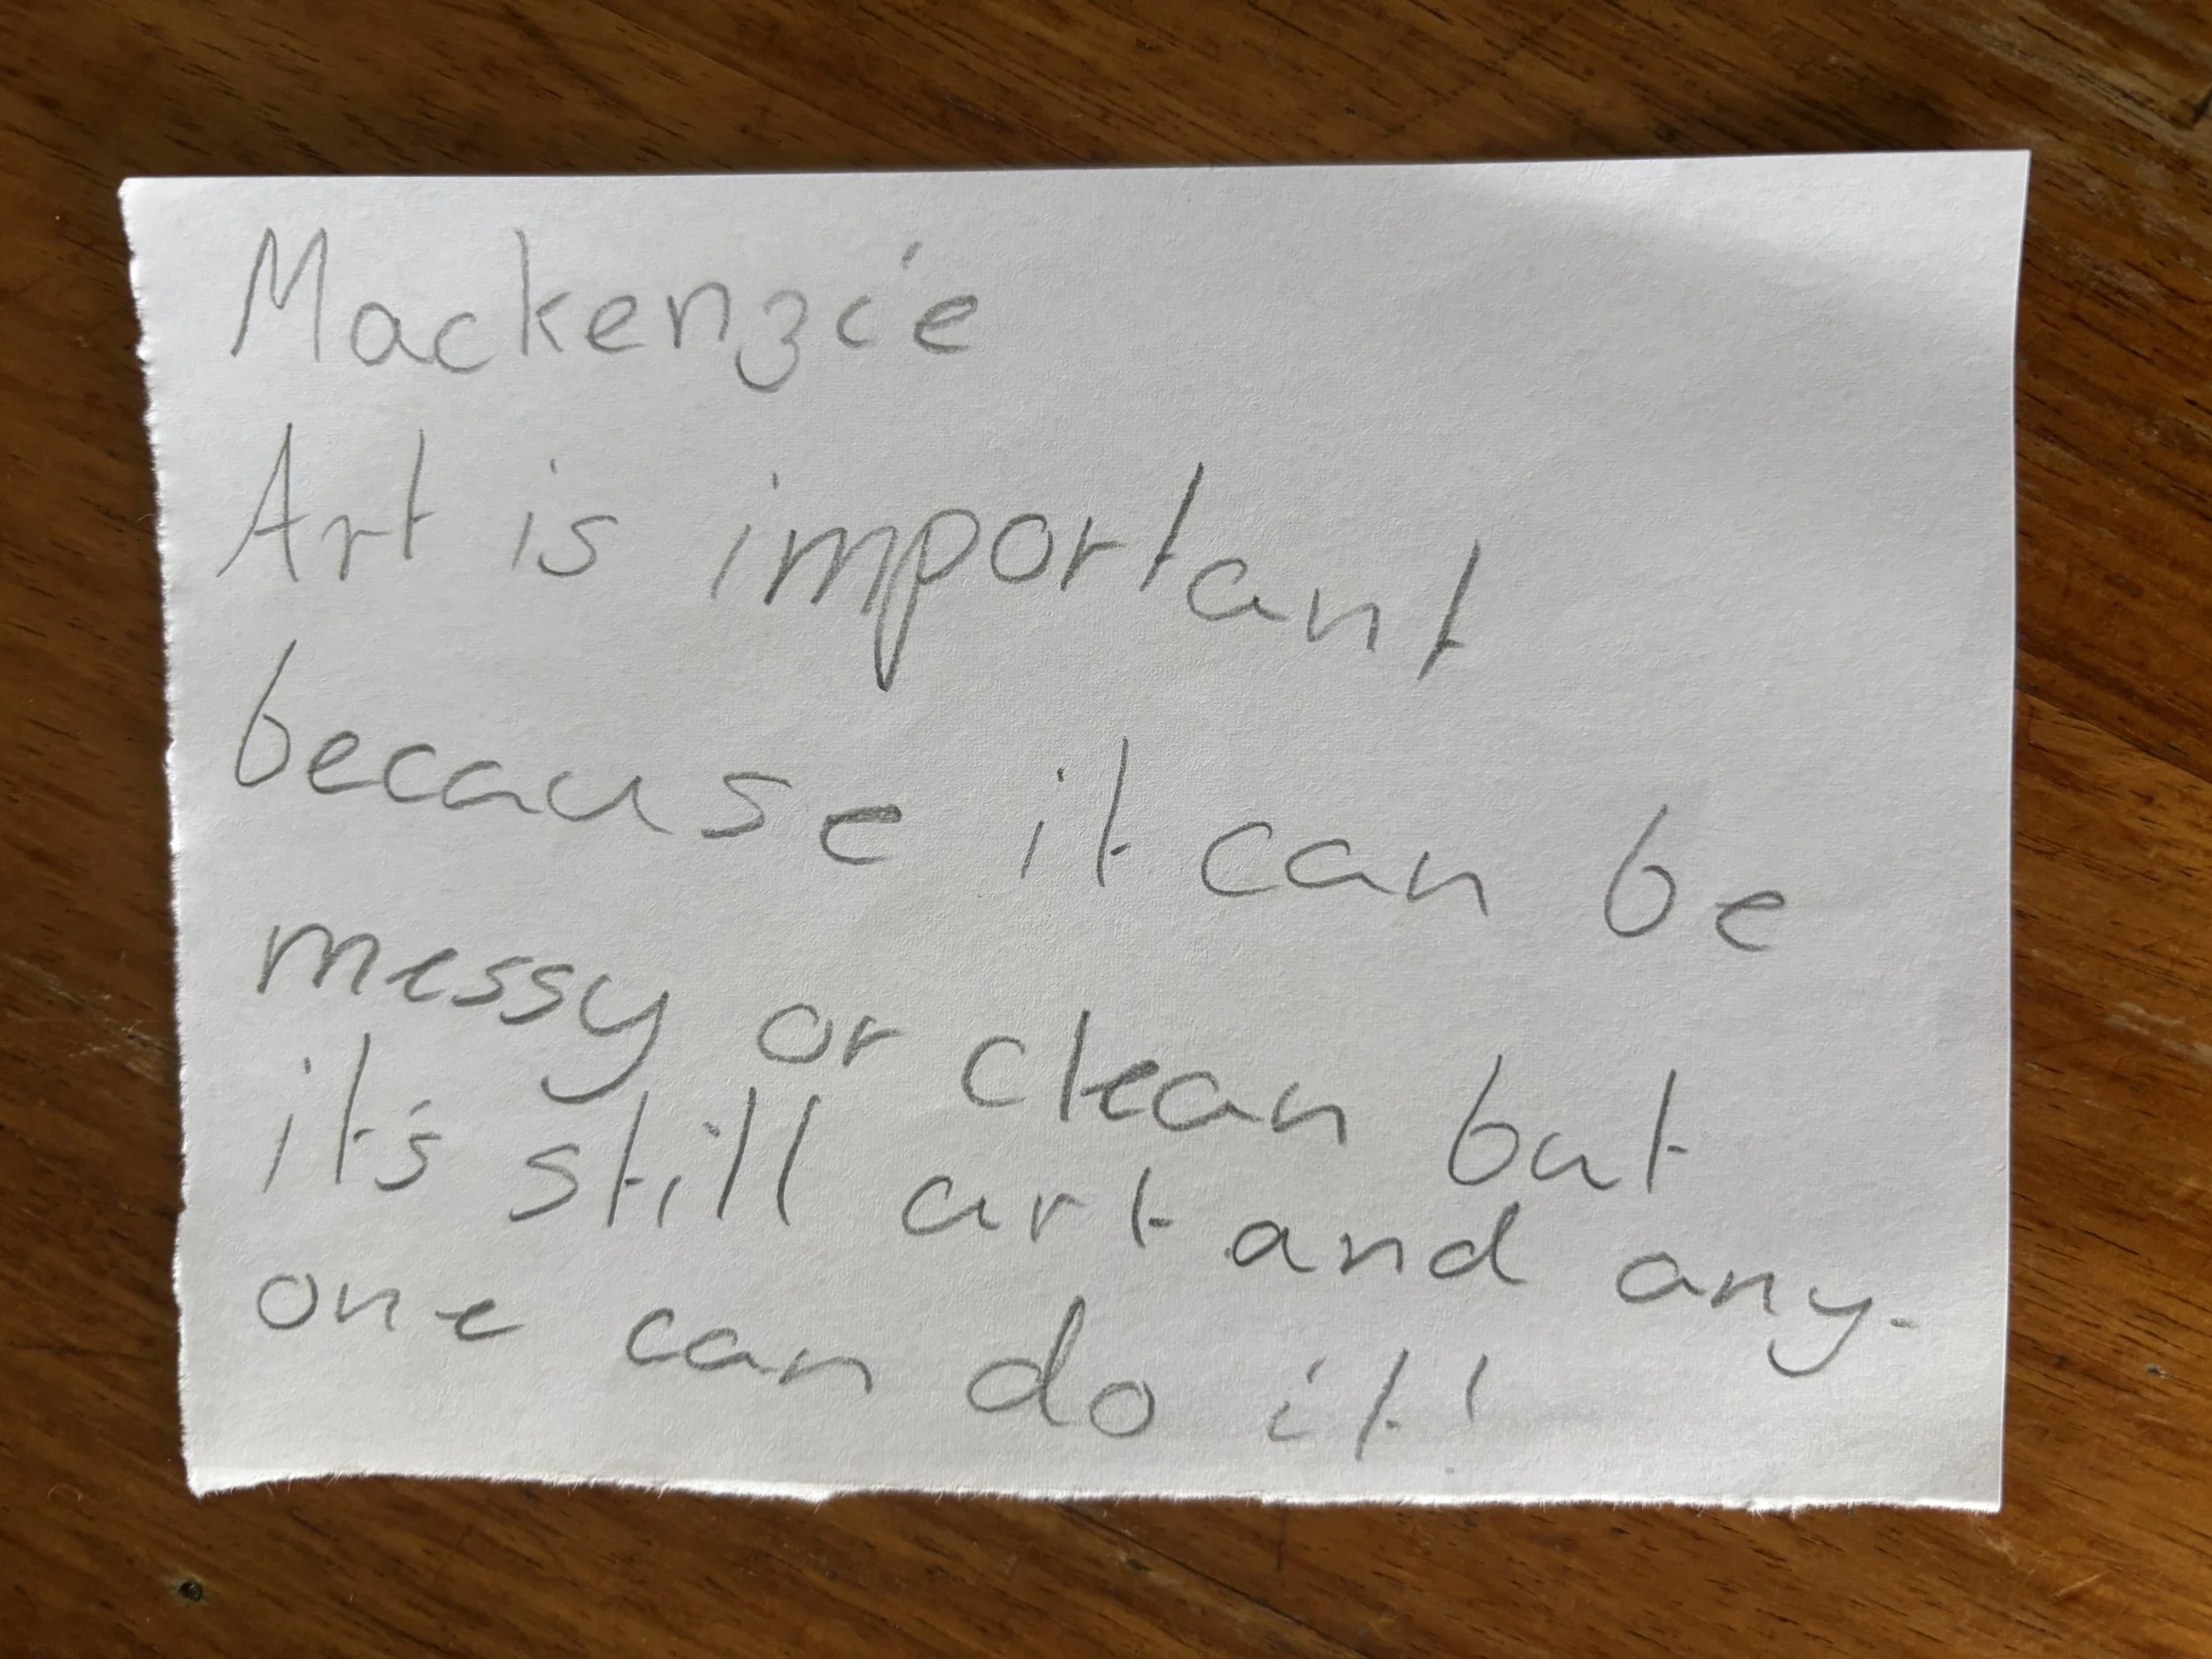 Mackenzie
Art is important
because it can be
messy or clean but
it's still art and any-
one can do it!